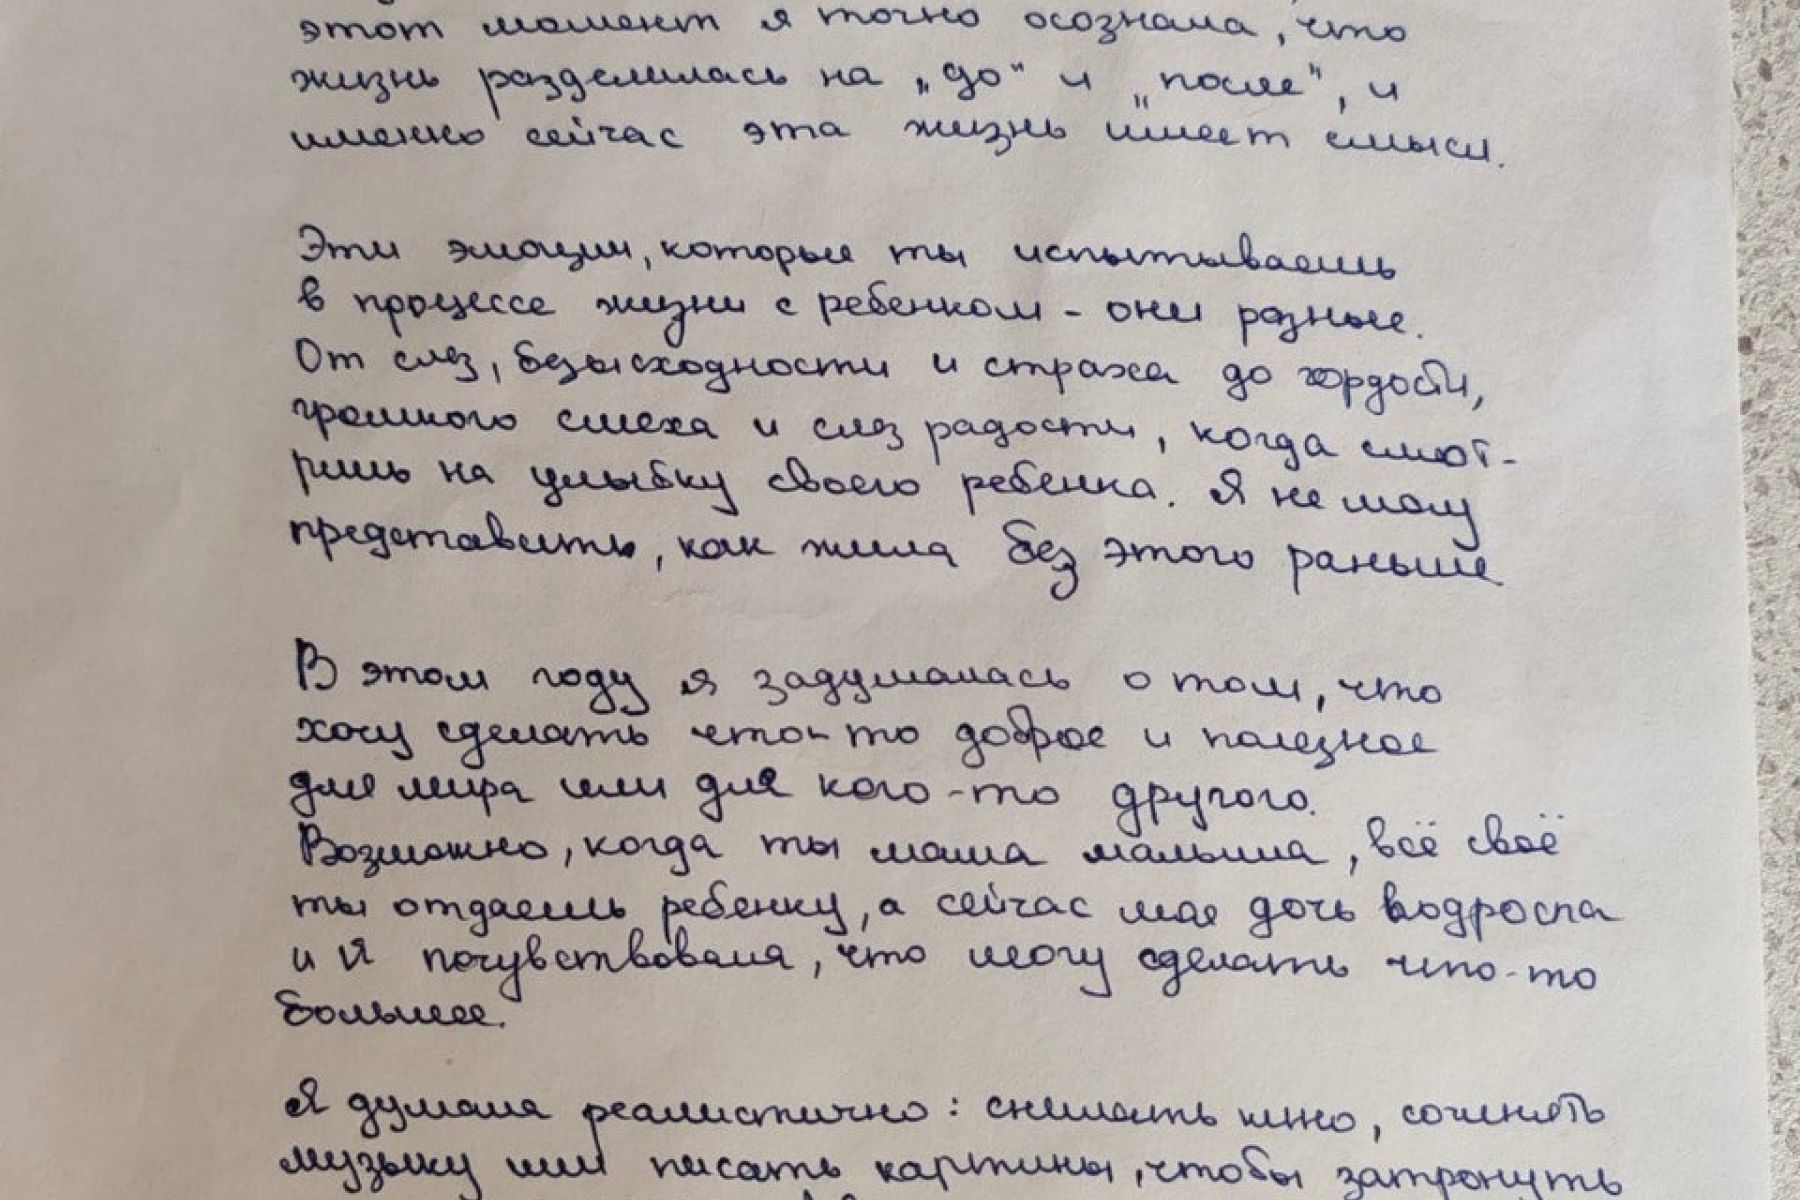 этот момент я точно осознала, что
жизнь разделилась на „до“ и „после“, и
именно сейчас эта жизнь имеет смысл.
Эти эмоции, которые ты испытываешь
в процессе жизни с ребенком - они разные.
От слез, безысходности и страха до гордости,
громкого смеха и слез радости, когда смот-
ришь на улыбку своего ребенка. Я не могу
представить, как жила без этого раньше
В этом году я задумалась о том, что
хочу сделать что-то доброе и полезное
для мира или для кого-то другого.
Возможно, когда ты мама малыша, всё своё
ты отдаешь ребенку, а сейчас моя дочь водросла
и я почувствовала, что могу сделать что-то
большее.
Я думала реалистично: снимать кино, сочинять
музыку или писать картины, чтобы затронуть